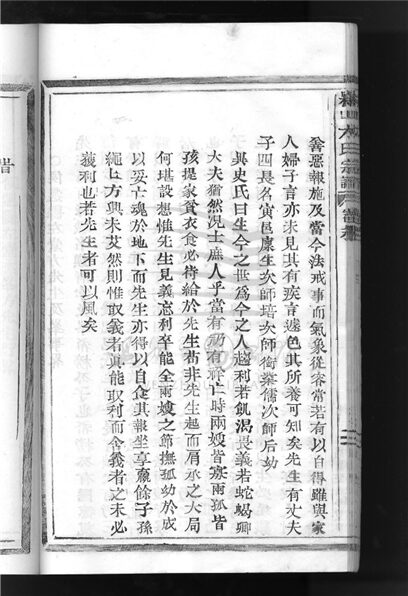 善惡報施及當今法戒事而氣象從容常若有以自得雖與家
人婦子言亦未見其有疾言遽色其所養可知矣先生有丈夫
子四長名寅邑廩生次師培次師衡業儒次師后幼
異史氏曰生今之世爲今之人趨利若飢渴畏義若蛇蝎卿
大夫猶然况士庶人乎當有礽有祚亡時兩嫂皆寡兩孤皆
孩提家貧衣食必待給於先生苟非先生起而肩承之大局
何堪設想惟先生見義忘利卒能全兩嫂之節撫孤幼於成
以妥古魂於地下而先生亦得以自食其報坐享麄餘子孫
繩上方興未艾然則惟取義者眞能取利而舍義者之未必
獲利也若先生者可以風矣
氏宗譜